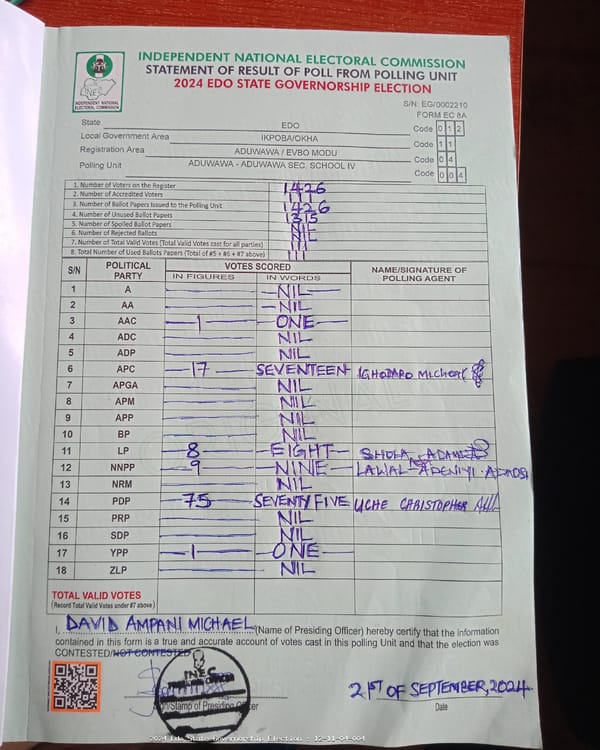 INDEPENDENT NATIONAL ELECTORAL COMMISSION
STATEMENT OF RESULT OF POLL FROM POLLING UNIT
2024 EDO STATE GOVERNORSHIP ELECTION
INEC
INDEPENDENT NATIONAL ELECTORAL COMMISSION
S/N: EG/0002210
FORM EC 8A
State EDO Code 0 1 2
Local Government Area IKPOBA/OKHA Code 1 1
Registration Area ADUWAWA / EVBO MODU Code 0 4
Polling Unit ADUWAWA - ADUWAWA SEC. SCHOOL IV Code 0 0 4
1. Number of Voters on the Register 1426
2. Number of Accredited Voters 111
3. Number of Ballot Papers Issued to the Polling Unit 1426
4. Number of Unused Ballot Papers 1315
5. Number of Spoiled Ballot Papers NIL
6. Number of Rejected Ballots NIL
7. Number of Total Valid Votes (Total Valid Votes cast for all parties) 111
8. Total Number of Used Ballots Papers (Total of #5 + #6 + #7 above) 111
S/N POLITICAL PARTY VOTES SCORED NAME/SIGNATURE OF POLLING AGENT
IN FIGURES IN WORDS
1 A NIL
2 AA NIL
3 AAC 1 ONE
4 ADC NIL
5 ADP NIL
6 APC 17 SEVENTEEN IGHODARO MICHEAL
7 APGA NIL
8 APM NIL
9 APP NIL
10 BP NIL
11 LP 8 EIGHT SHOLA ADAMS
12 NNPP 9 NINE LAWAL ADENIYI
13 NRM NIL
14 PDP 75 SEVENTY FIVE UCHE CHRISTOPHER
15 PRP NIL
16 SDP NIL
17 YPP 1 ONE
18 ZLP NIL
TOTAL VALID VOTES
(Record Total Valid Votes under #7 above)
I, DAVID AMPANI MICHAEL (Name of Presiding Officer) hereby certify that the information
contained in this form is a true and accurate account of votes cast in this polling Unit and that the election was
CONTESTED/NOT CONTESTED
INEC
PRESIDING OFFICER
21ST OF SEPTEMBER, 2024
Sign/Stamp of Presiding Officer Date
2024 Edo State Governorship Election - 12-11-04-004